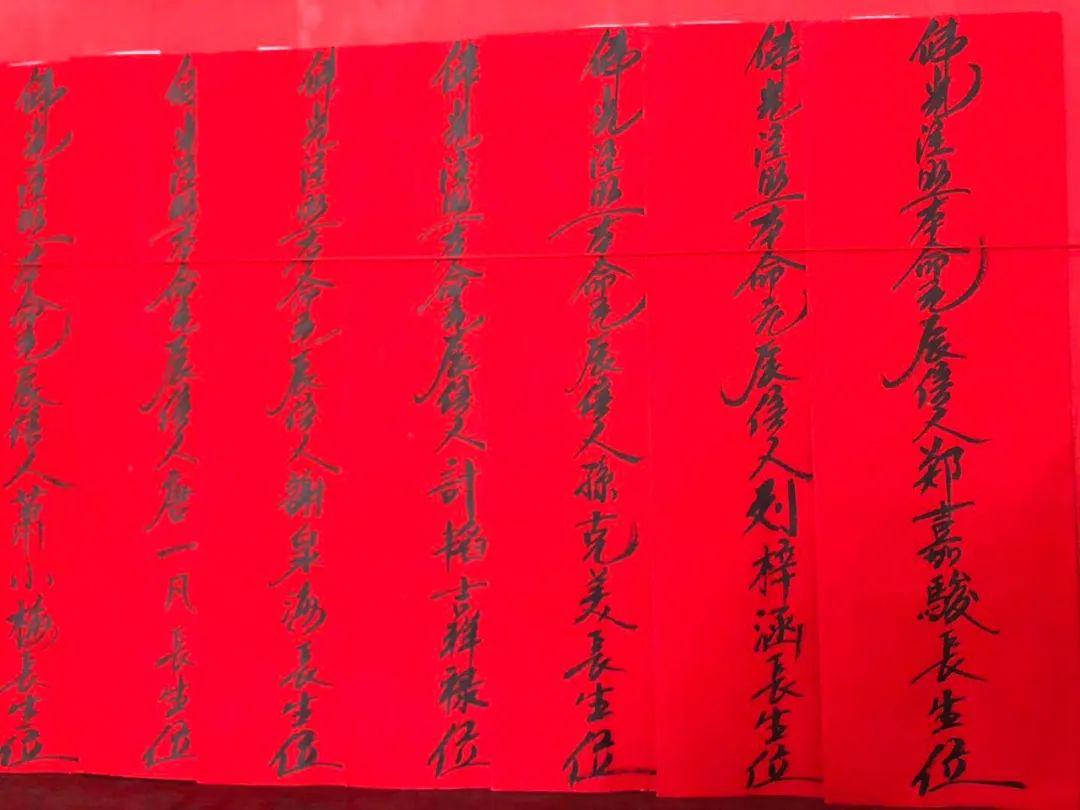 佛光注照本命元辰信人郑嘉駿長生位
佛光注照本命元辰信人刘梓涵長生位
佛光注照本命元辰信人孫克美長生位
佛光注照本命元辰信人計韬吉祥禄位
佛光注照本命元辰信人謝泉海長生位
光注照本命元辰信人唐一凡長生位
佛光注照本命元辰信人萧小梅長生位